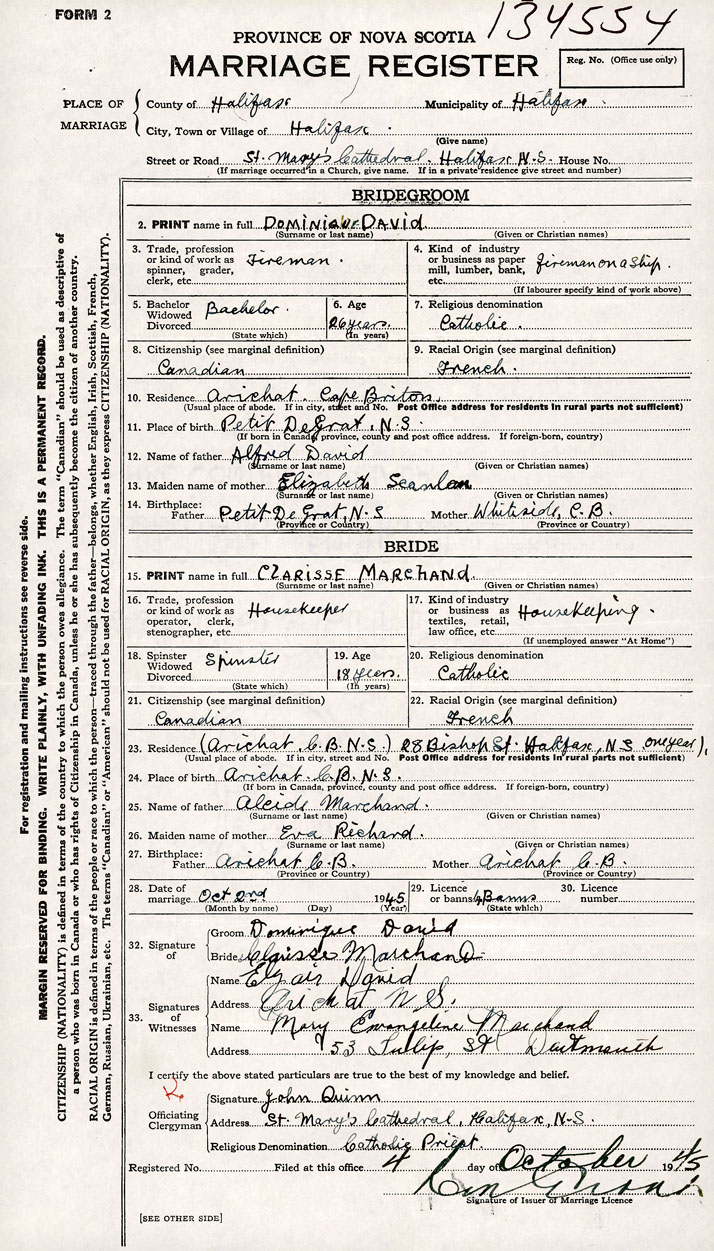 FORM 2
134554
PROVINCE OF NOVA SCOTIA
MARRIAGE REGISTER
Reg. No. (Office use only)
PLACE OF MARRIAGE
County of Halifax Municipality of Halifax.
City, Town or Village of Halifax.
(Give name)
Street or Road St. Mary's Cathedral. Halifax N.S. House No.
(If marriage occurred in a Church, give name. If in a private residence give street and number)
BRIDEGROOM
2. PRINT name in full DOMINIQUE DAVID
(Surname or last name) (Given or Christian names)
3. Trade, profession or kind of work as spinner, grader, clerk, etc. Fireman.
4. Kind of industry or business as paper mill, lumber, bank, etc. fireman on a ship.
(If labourer specify kind of work above)
5. Bachelor Widowed Divorced Bachelor.
(State which)
6. Age 26 years.
(In years)
7. Religious denomination
Catholic.
8. Citizenship (see marginal definition)
Canadian
9. Racial Origin (see marginal definition)
French.
10. Residence Arichat. Cape Briton.
(Usual place of abode. If in city, street and No. Post Office address for residents in rural parts not sufficient)
11. Place of birth Petit De Grat, N.S.
(If born in Canada, province, county and post office address. If foreign-born, country)
12. Name of father Alfred David
(Surname or last name) (Given or Christian names)
13. Maiden name of mother Elizabeth Scanlan
(Surname or last name) (Given or Christian names)
14. Birthplace: Father Petit De Grat, N.S Mother Whiteside, C.B.
(Province or Country) (Province or Country)
BRIDE
15. PRINT name in full CLARISSE MARCHAND.
(Surname or last name) (Given or Christian names)
16. Trade, profession or kind of work as operator, clerk, stenographer, etc. Housekeeper
17. Kind of industry or business as textiles, retail, law office, etc. Housekeeping.
(If unemployed answer "At Home")
18. Spinster Widowed Divorced Spinster
(State which)
19. Age 18 years.
(In years)
20. Religious denomination
Catholic
21. Citizenship (see marginal definition)
Canadian
22. Racial Origin (see marginal definition)
French
23. Residence (Arichat C.B. N.S.) 28 Bishop St. Halifax, N.S one year),
(Usual place of abode. If in city, street and No. Post Office address for residents in rural parts not sufficient)
24. Place of birth Arichat. C.B. N.S.
(If born in Canada, province, county and post office address. If foreign-born, country)
25. Name of father Alcide Marchand.
(Surname or last name) (Given or Christian names)
26. Maiden name of mother Eva Richard.
(Surname or last name) (Given or Christian names)
27. Birthplace: Father Arichat C.B. Mother Arichat C.B.
(Province or Country) (Province or Country)
28. Date of marriage Oct 2nd 1945
(Month by name) (Day) (Year)
29. Licence or banns Banns
(State which)
30. Licence number
32. Signature of
Groom Dominique David
Bride Clarisse Marchand
33. Signatures of Witnesses
Name David
Address Arichat N.S.
Name Mary Evangeline Marchand
Address 53 Tulip, St Dartmouth
I certify the above stated particulars are true to the best of my knowledge and belief.
Officiating Clergyman
Signature John Quinn
Address St. Mary's Cathedral, Halifax, N.S.
Religious Denomination Catholic Priest.
Registered No. Filed at this office 4 day of October 1945
Signature of Issuer of Marriage Licence
[SEE OTHER SIDE]
For registration and mailing instructions see reverse side.
MARGIN RESERVED FOR BINDING. WRITE PLAINLY, WITH UNFADING INK. THIS IS A PERMANENT RECORD.
CITIZENSHIP (NATIONALITY) is defined in terms of the country to which the person owes allegiance. The term "Canadian" should be used as descriptive of
a person who was born in Canada or who has rights of Citizenship in Canada, unless he or she has subsequently become the citizen of another country.
RACIAL ORIGIN is defined in terms of the people or race to which the person—traced through the father—belongs, whether English, Irish, Scottish, French,
German, Russian, Ukrainian, etc. The terms "Canadian" or "American" should not be used for RACIAL ORIGIN, as they express CITIZENSHIP (NATIONALITY).